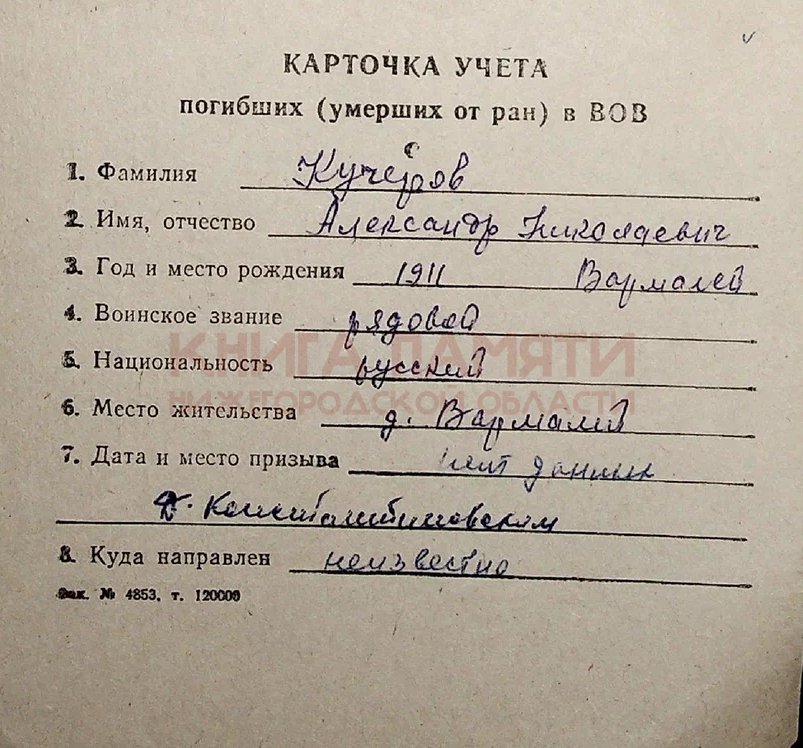 КАРТОЧКА УЧЕТА
погибших (умерших от ран) в ВОВ
1. Фамилия Кучеров
2. Имя, отчество Александр Николаевич
3. Год и место рождения 1911 Вармалей
4. Воинское звание рядовой
КНИГА ПАМЯТИ
5. Национальность русский
НИЖЕГОРОДСКОЙ ОБЛАСТИ
6. Место жительства д. Вармалей
7. Дата и место призыва нет данных
8. Куда направлен неизвестно
Зак. № 4853, т. 120000